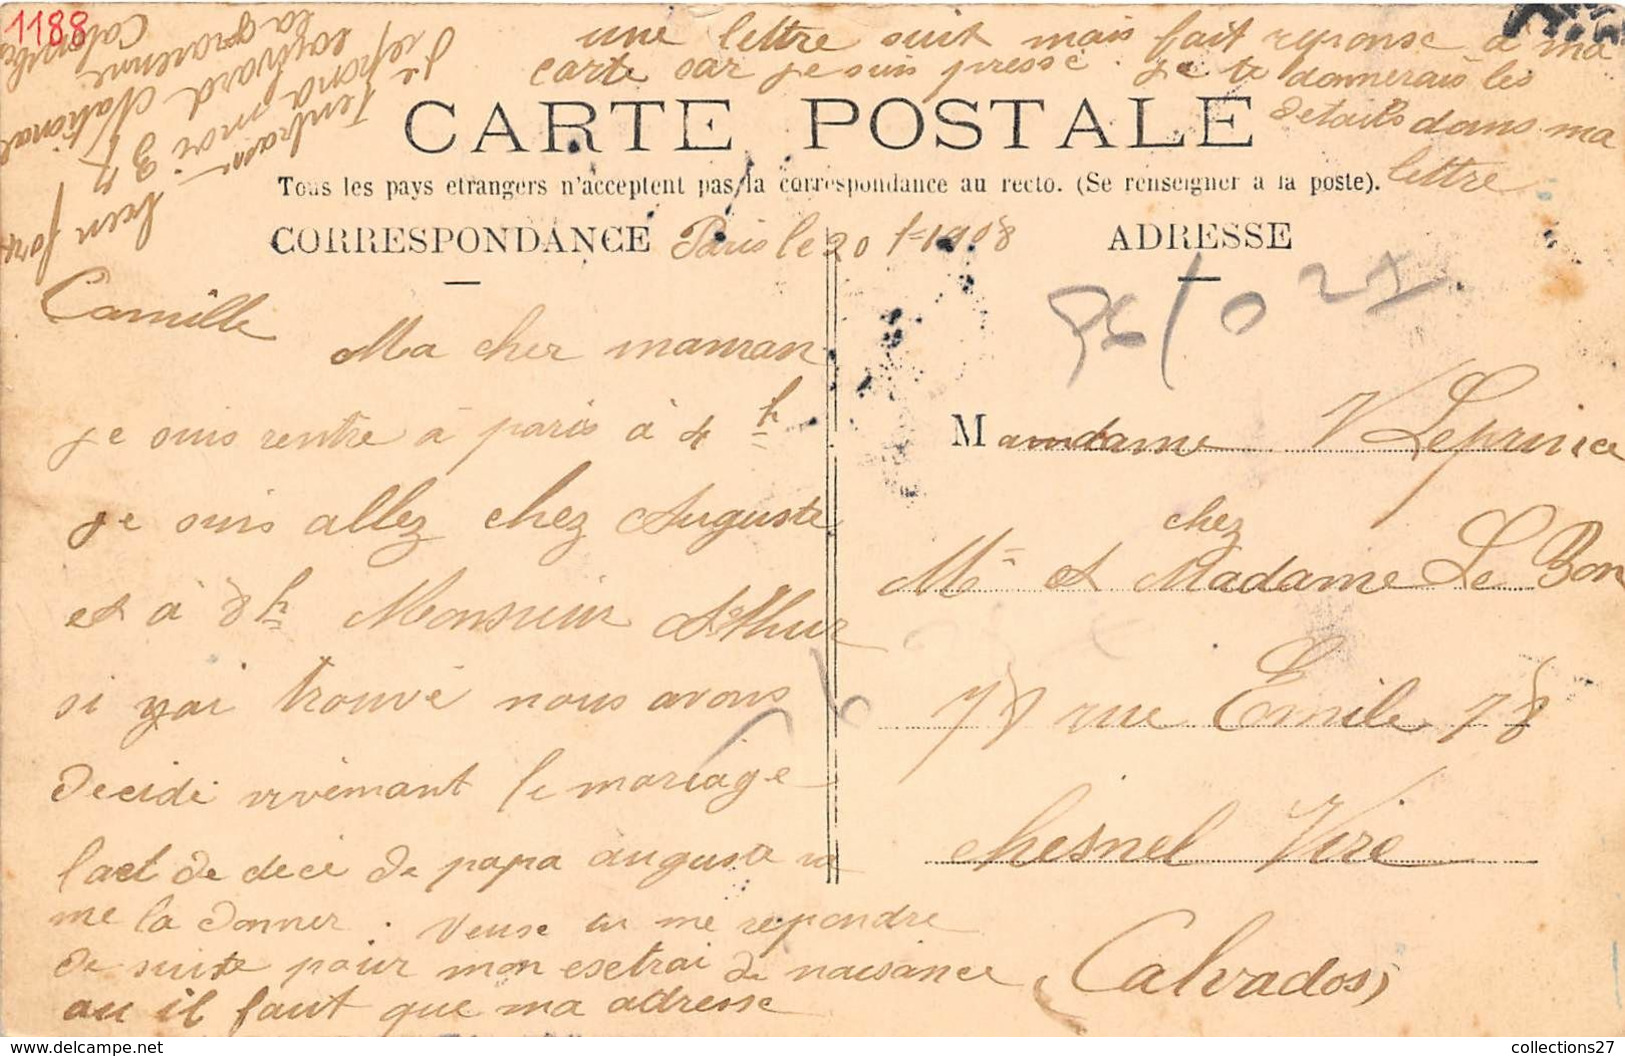 1188
une lettre suit mais fait reponse a ma
carte car je suis pressé. je te donnerais les
details dans ma
lettre
CARTE POSTALE
Tous les pays etrangers n'acceptent pas la correspondance au recto. (Se renseigner a la poste).
CORRESPONDANCE
Paris le 20 1=1908
ADRESSE
Camille
Ma cher maman
je suis rentre à paris à 4 h
je suis allez chez Auguste
et à 8h Monsieur Athur
si yai trouvé nous avons
decidé vivémant le mariage
lact de decé de papa auguste va
me la donner. Veuse tu me repondre
de suite pour mon esetrai de naisance
au il faut que ma adresse
repond moi 37
boulvard National
la garenne
Colombe
bien fort
Madame V Leprince
chez
Mr et Madame Le Bon
78 rue Emile 78
chesnel Vire
(Calvados)
https://www.delcampe.net
collections27